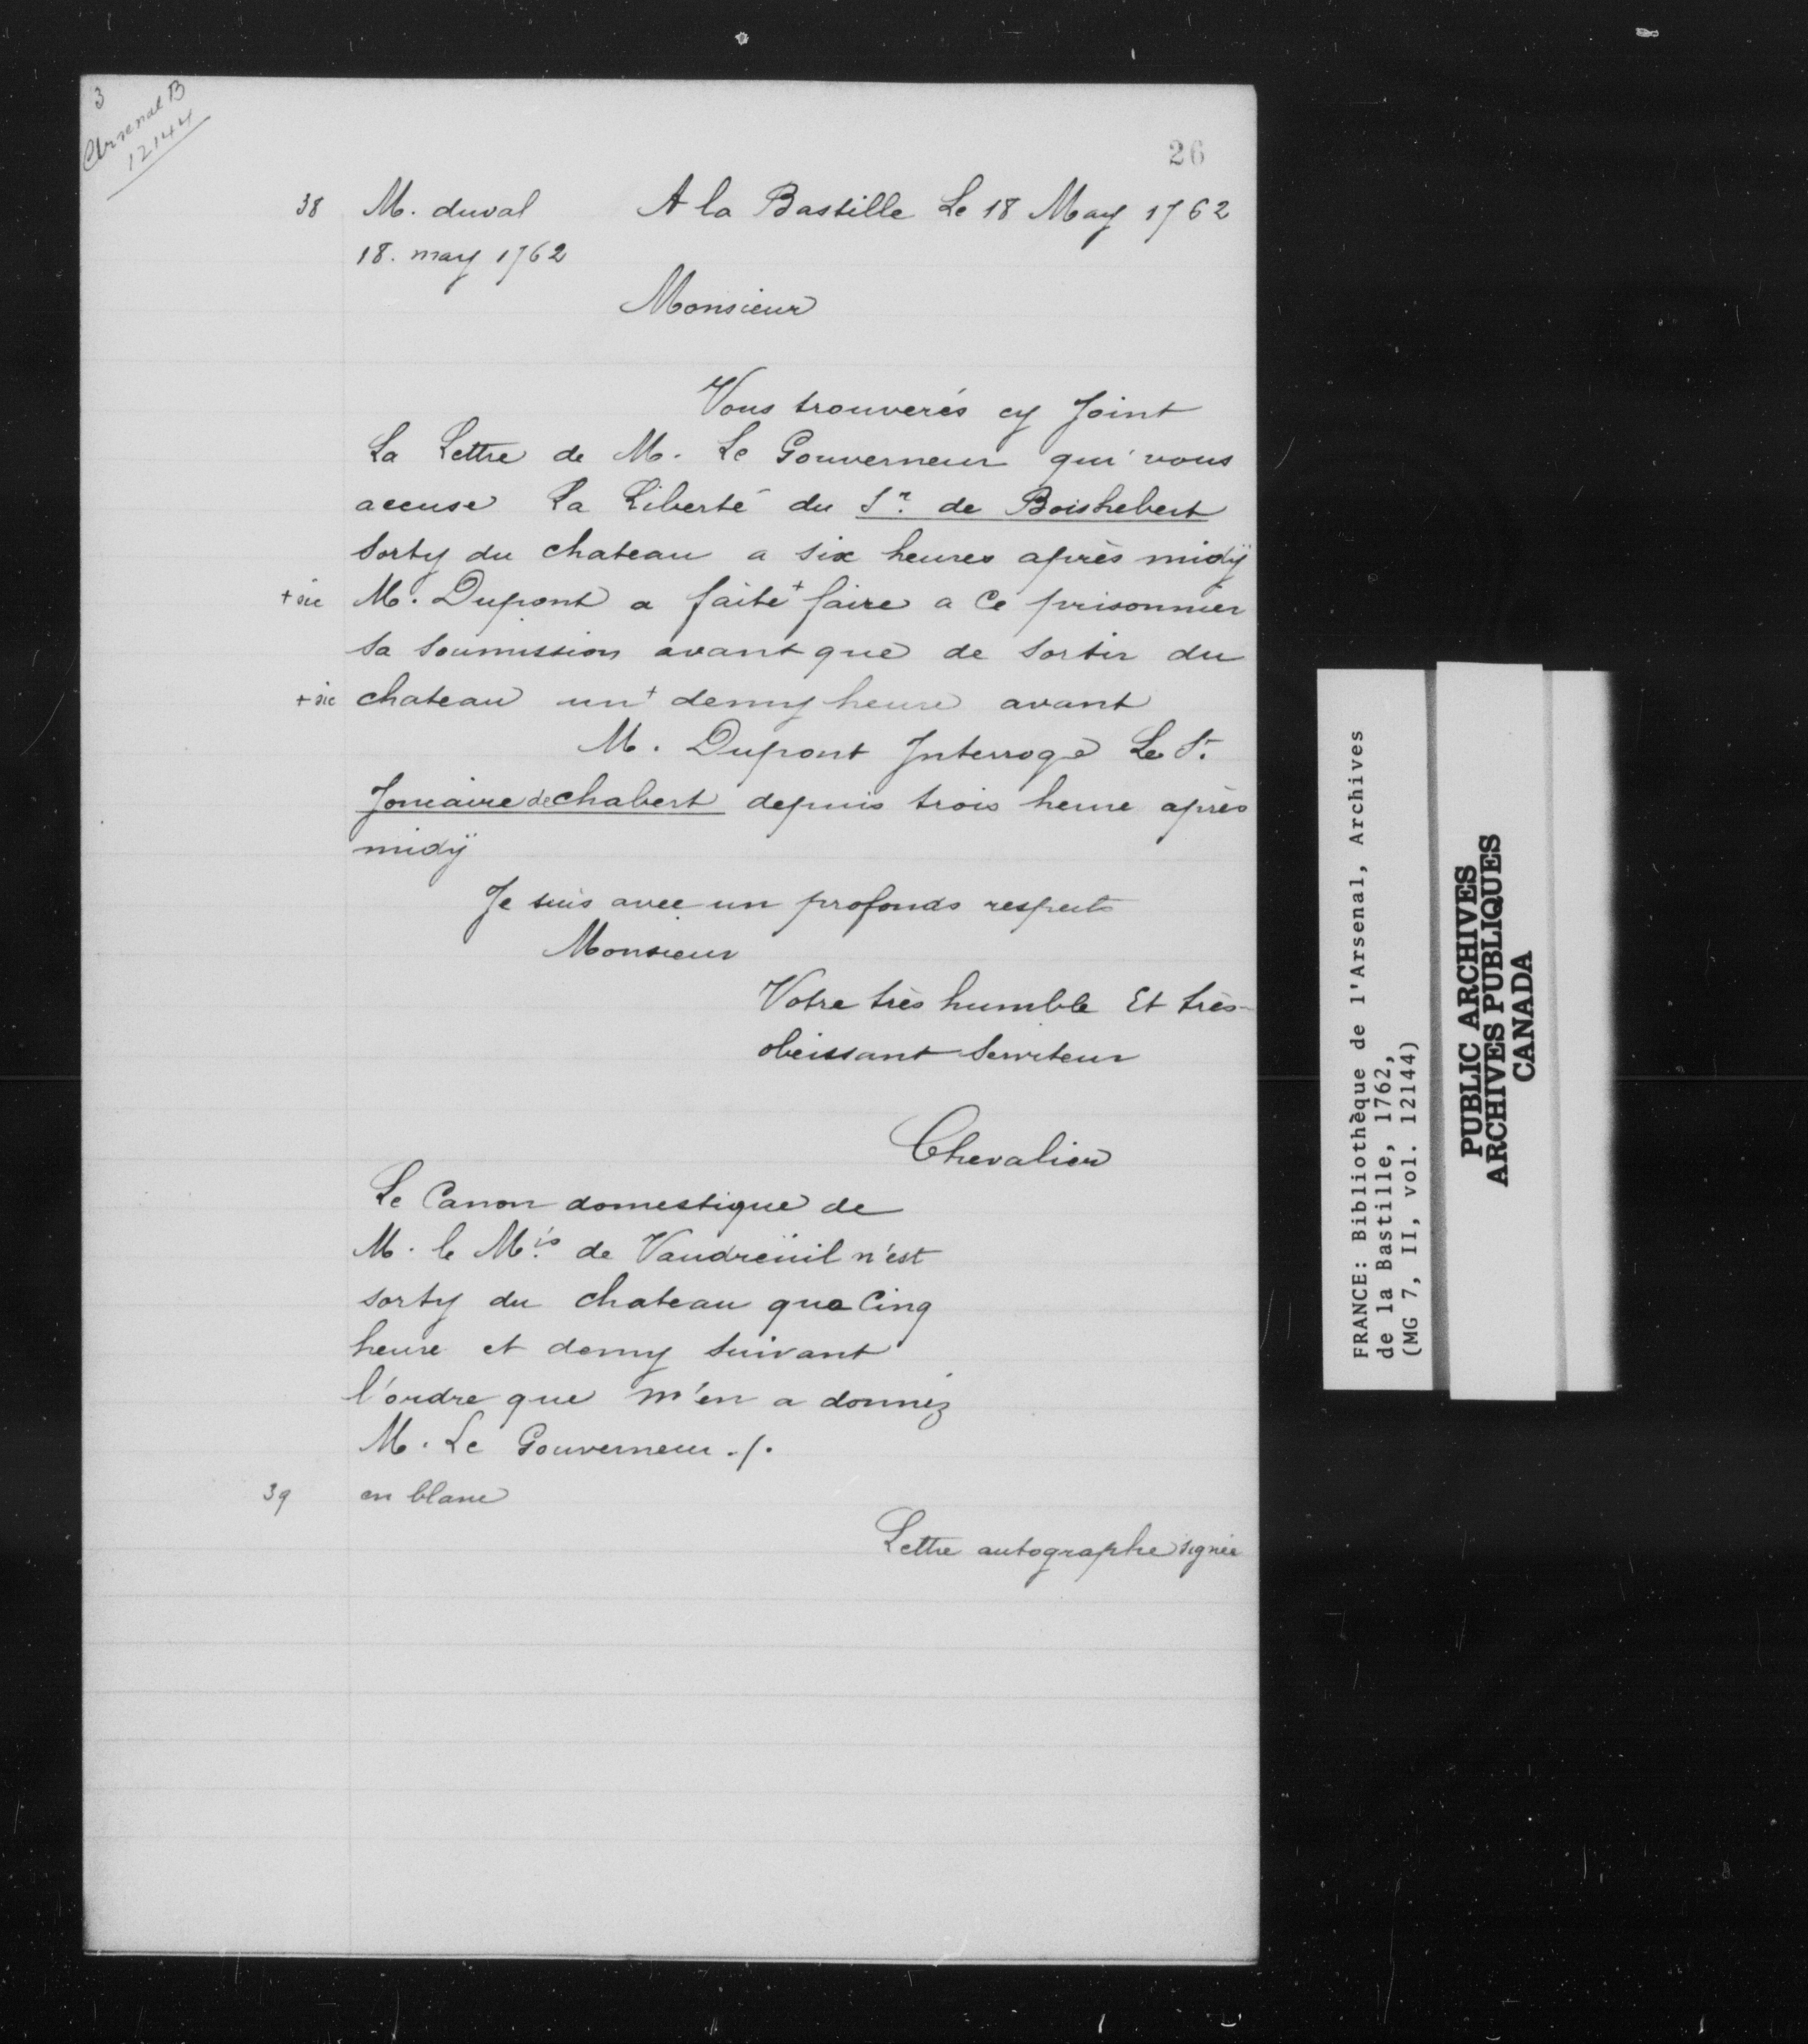 3
Arsenal B
12144
26
38 M. duval A la Bastille Le 18 May 1762
18. may 1762
Monsieur
Vous trouverés cy Joint
La Lettre de M. Le Gouverneur qui vous
accuse La Liberté du Sr. de Boishebert
sorty du chateau a six heures après midÿ
+ sic M. Dupont a faite + faire a Ce prisonnier
sa soumission avant que de sortir du
+ sic chateau un + demy heure avant
M. Dupont Interroge Le Sr.
Joncaire de chabert depuis trois heure après
midÿ
Je suis avec un profonds respects
Monsieur
Votre très humble Et très-
obeissant Serviteur
Chevalier
Le Canon domestique de
M. le Mis. de Vaudreüil n'est
sorty du chateau qua Cinq
heure et demy suivant
l'ordre que m'en a donnéz
M. Le Gouverneur ./.
39 en blanc
Lettre autographe signée
FRANCE: Bibliothèque de l'Arsenal, Archives
de la Bastille, 1762,
(MG 7, II, vol. 12144)
PUBLIC ARCHIVES
ARCHIVES PUBLIQUES
CANADA